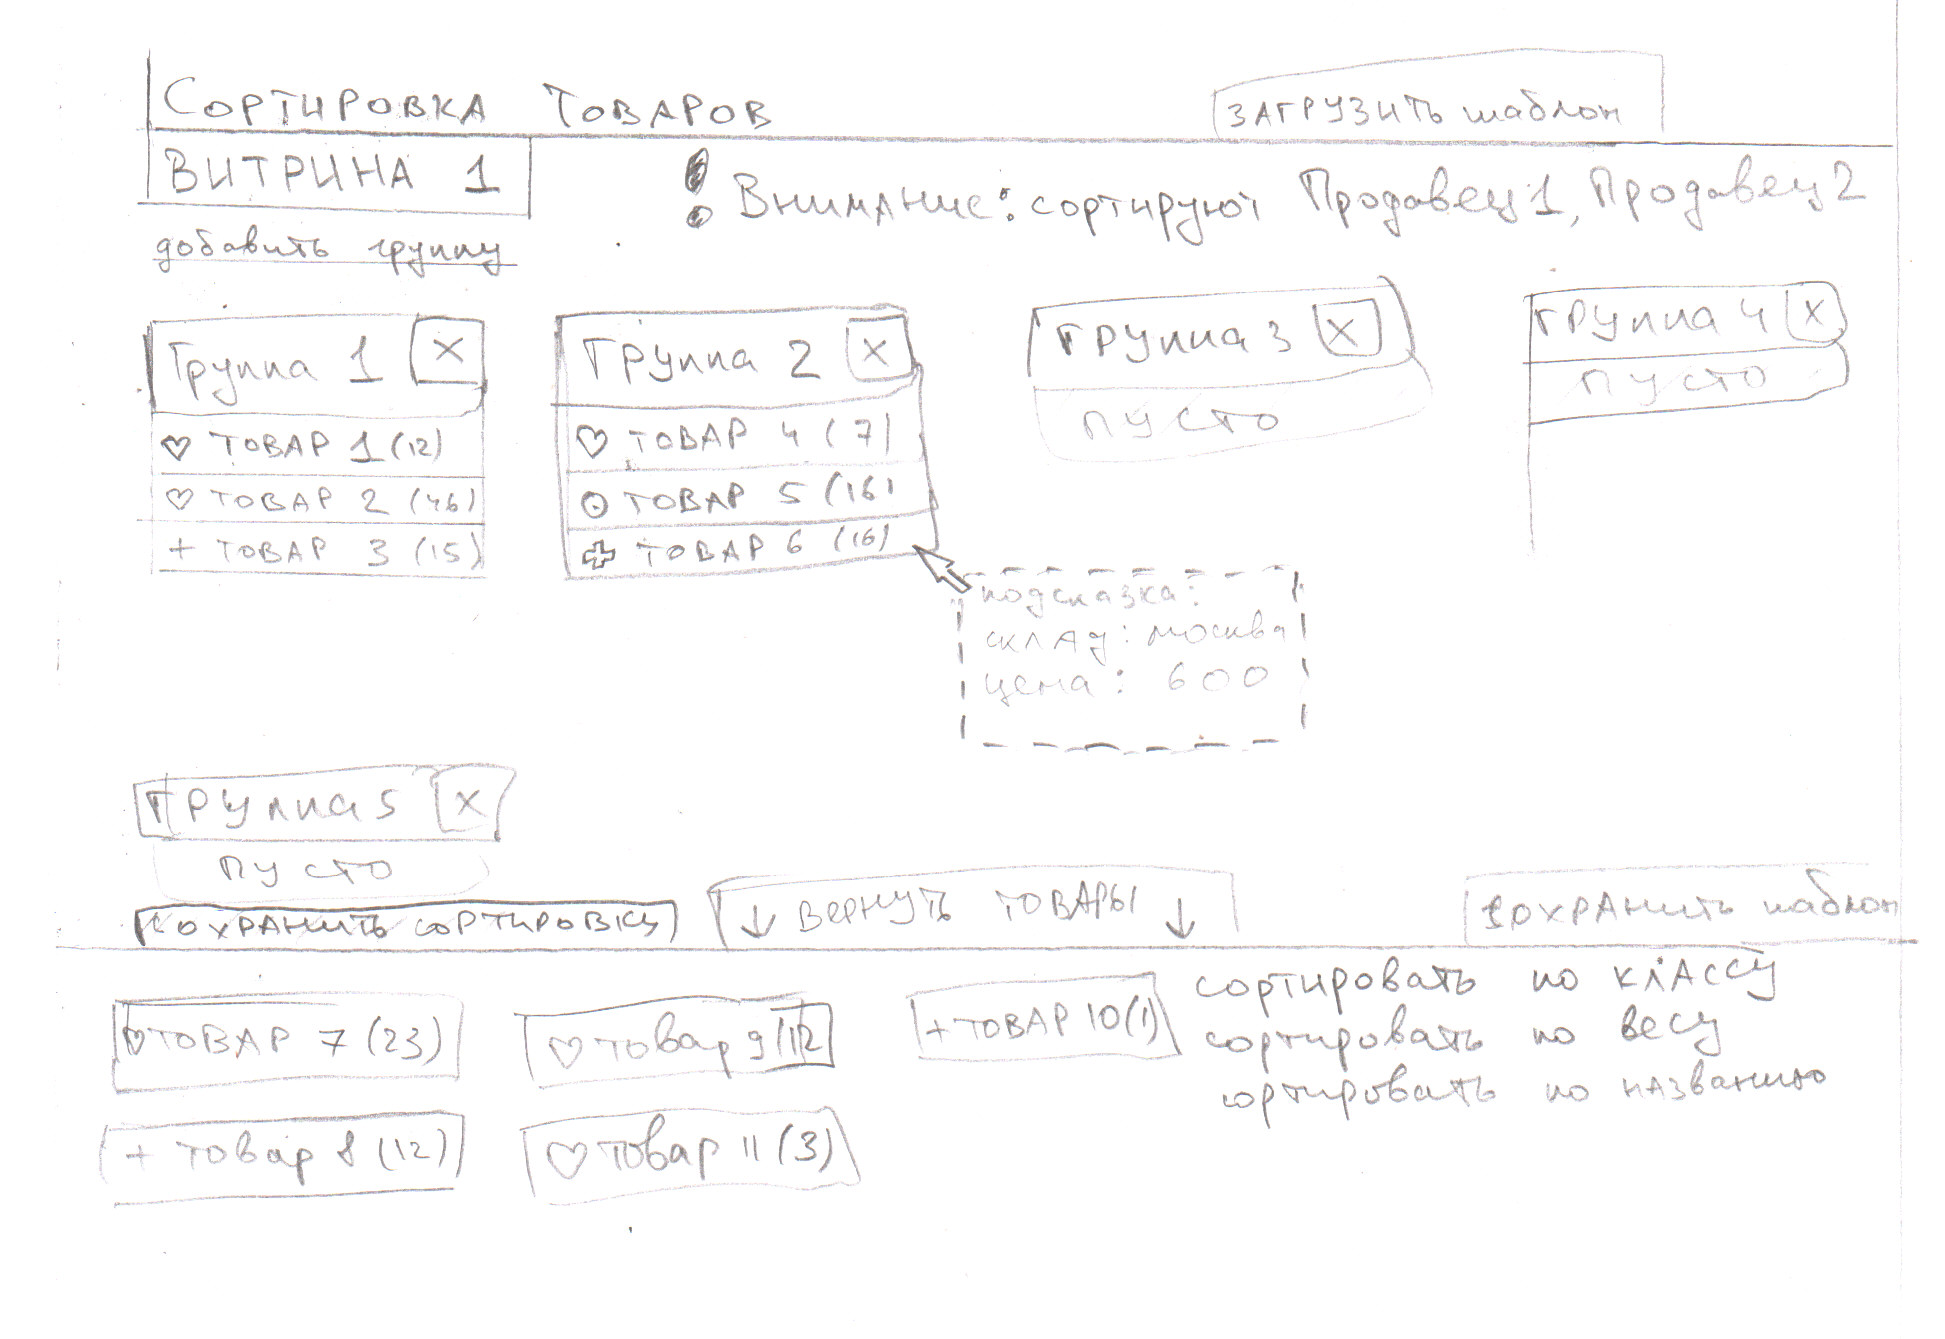 Сортировка товаров
загрузить шаблон
Витрина 1
! Внимание: сортируют Продавец 1, Продавец 2
добавить группу
Группа 1 X
♡ товар 1 (12)
♡ товар 2 (46)
+ товар 3 (15)
Группа 2 X
♡ товар 4 (7)
⊙ товар 5 (16)
✚ товар 6 (16)
группа 3 X
пусто
группа 4 X
пусто
подсказка:
склад: москва
цена: 600
группа 5 X
пусто
сохранить сортировку
↓ вернуть товары ↓
сохранить шаблон
♡ товар 7 (23)
♡ товар 9 (12
+ товар 10 (1)
+ товар 8 (12)
♡ товар 11 (3)
сортировать по классу
сортировать по весу
сортировать по названию